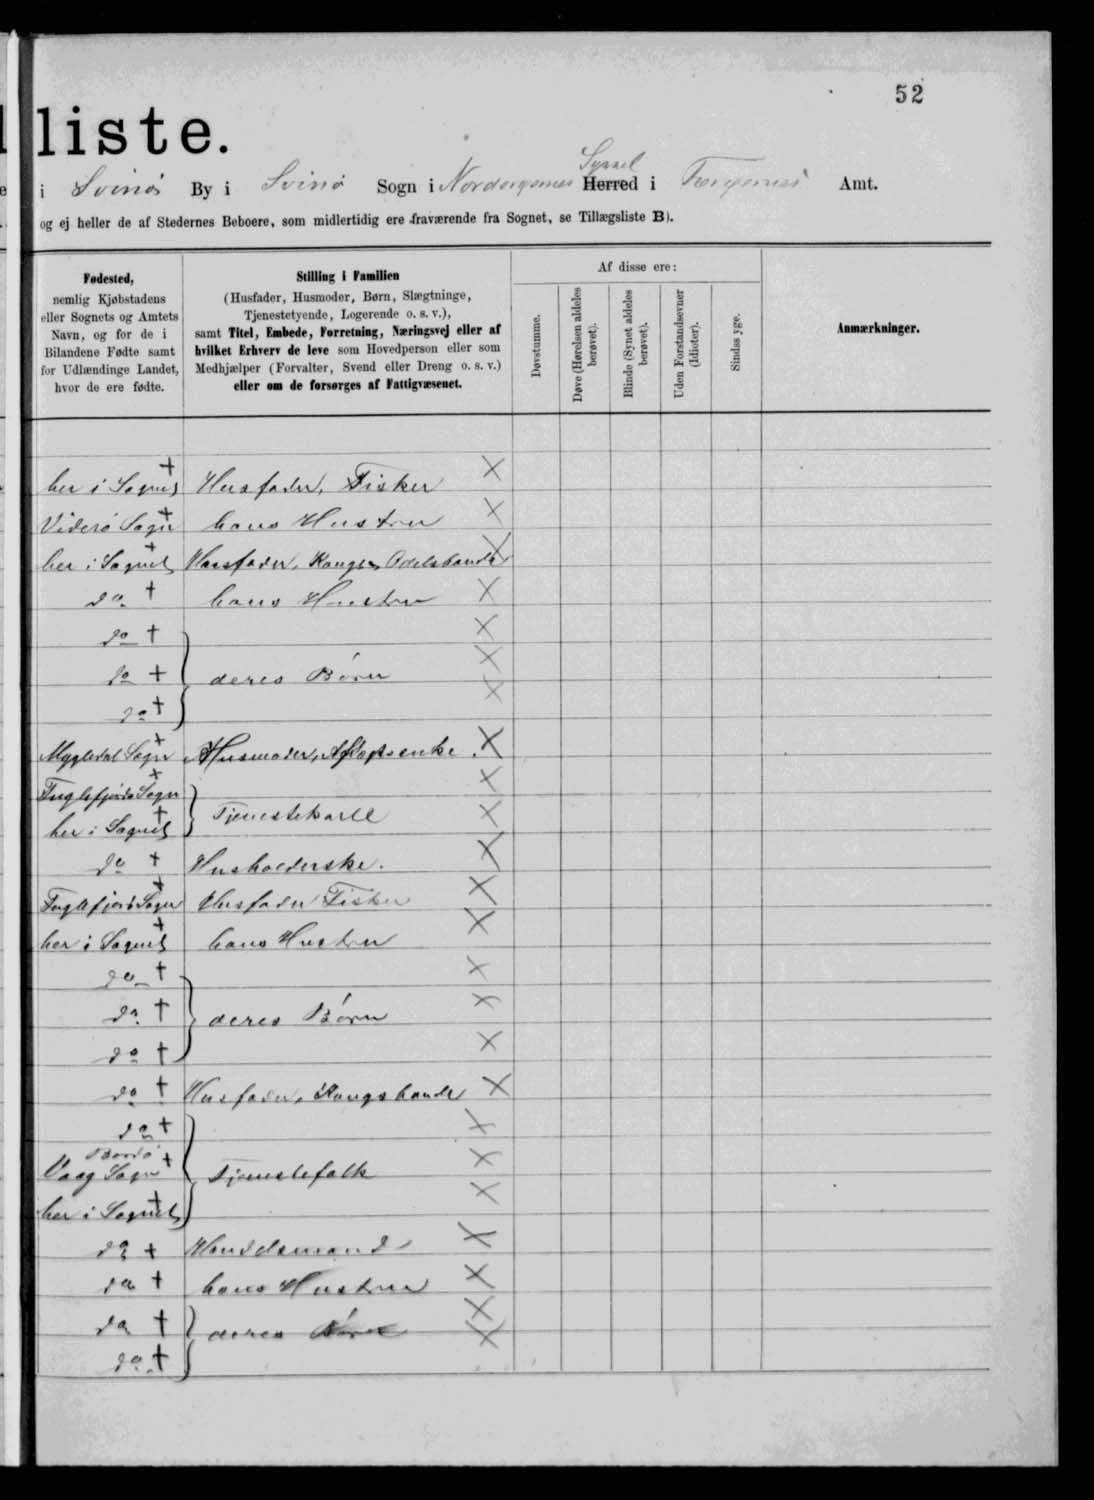 52
liste.
i Svinø By i Svinø Sogn i Norderøernes Syssel Herred i Færøernes Amt.
og ej heller de af Stedernes Beboere, som midlertidig ere fraværende fra Sognet, se Tillægsliste B).
Fødested,
nemlig Kjøbstadens
eller Sognets og Amtets
Navn, og for de i
Bilandene Fødte samt
for Udlændinge Landet,
hvor de ere fødte.
Stilling i Familien
(Husfader, Husmoder, Børn, Slægtninge,
Tjenestetyende, Logerende o. s. v.),
samt Titel, Embede, Forretning, Næringsvej eller af
hvilket Erhverv de leve som Hovedperson eller som
Medhjælper (Forvalter, Svend eller Dreng o. s. v.)
eller om de forsørges af Fattigvæsenet.
Af disse ere:
Døvstumme.
Døve (Hørelsen aldeles
berøvet).
Blinde (Synet aldeles
berøvet).
Uden Forstandsevner
(Idioter).
Sindssyge.
Anmærkninger.
her i Sognet Husfader, Fisker
Viderø Sogn hans Hustru
her i Sognet Husfader, Konge og Odelsbonde
do hans Hustru
do
do deres Børn
do
Mygledal Sogn Husmoder, Aftægtsenke
Fuglefjords Sogn
her i Sognet Tjenestekarle
do Husholderske.
Fuglefjord Sogn Husfader Fisker
her i Sognet hans Hustru
do
do deres Børn
do
do Husfader, Kongsbonde
do
Bordø
Vaag Sogn Tjenestefolk
her i Sognet
do
do hans Hustru
do deres Børn
do